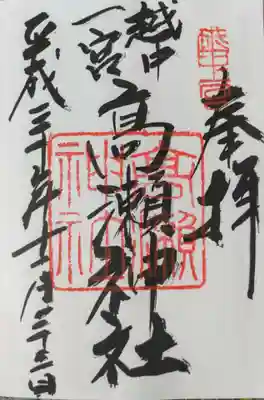 奉拝
越中
一宮
高瀬神社
平成三十年十一月二十三日
高瀬
神社